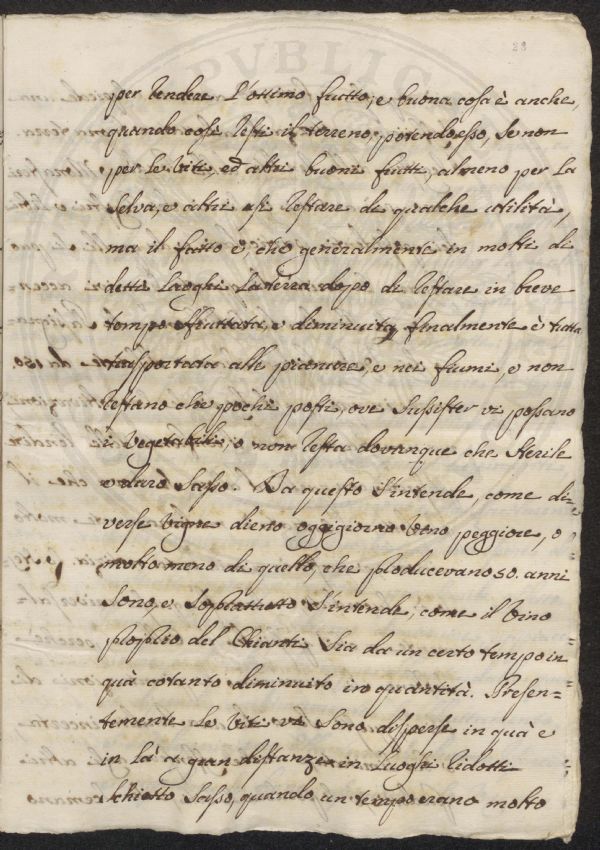 28
per rendere l'ottimo frutto, e buona cosa è anche,
quando così resti il terreno, potendo esso, se non
per le viti, ed altri buoni frutti, almeno per la
selva, e altri si restare di qualche utilità,
ma il fatto è, che generalmente in molti di
detti luoghi la terra dopo di restare in breve
tempo sfruttata, e diminuita, finalmente è tutta
trasportata alle pianure, e nei fiumi, e non
restano che pochi posti, ove sussister vi possano
i vegetabili, e non resta dovunque che sterile
e duro sasso. Da questo s'intende, come di=
verse vigne dieno oggigiorno vino peggiore, e
molto meno di quello, che producevano 50. anni
sono, e soprattutto s'intende, come il vino
proprio del Chianti sia da un certo tempo in
quà cotanto diminuito in quantità. Presen=
temente le viti vi sono disperse in quà e
in là a gran distanze in luoghi ridotti
schietto sasso, quando un tempo erano molto